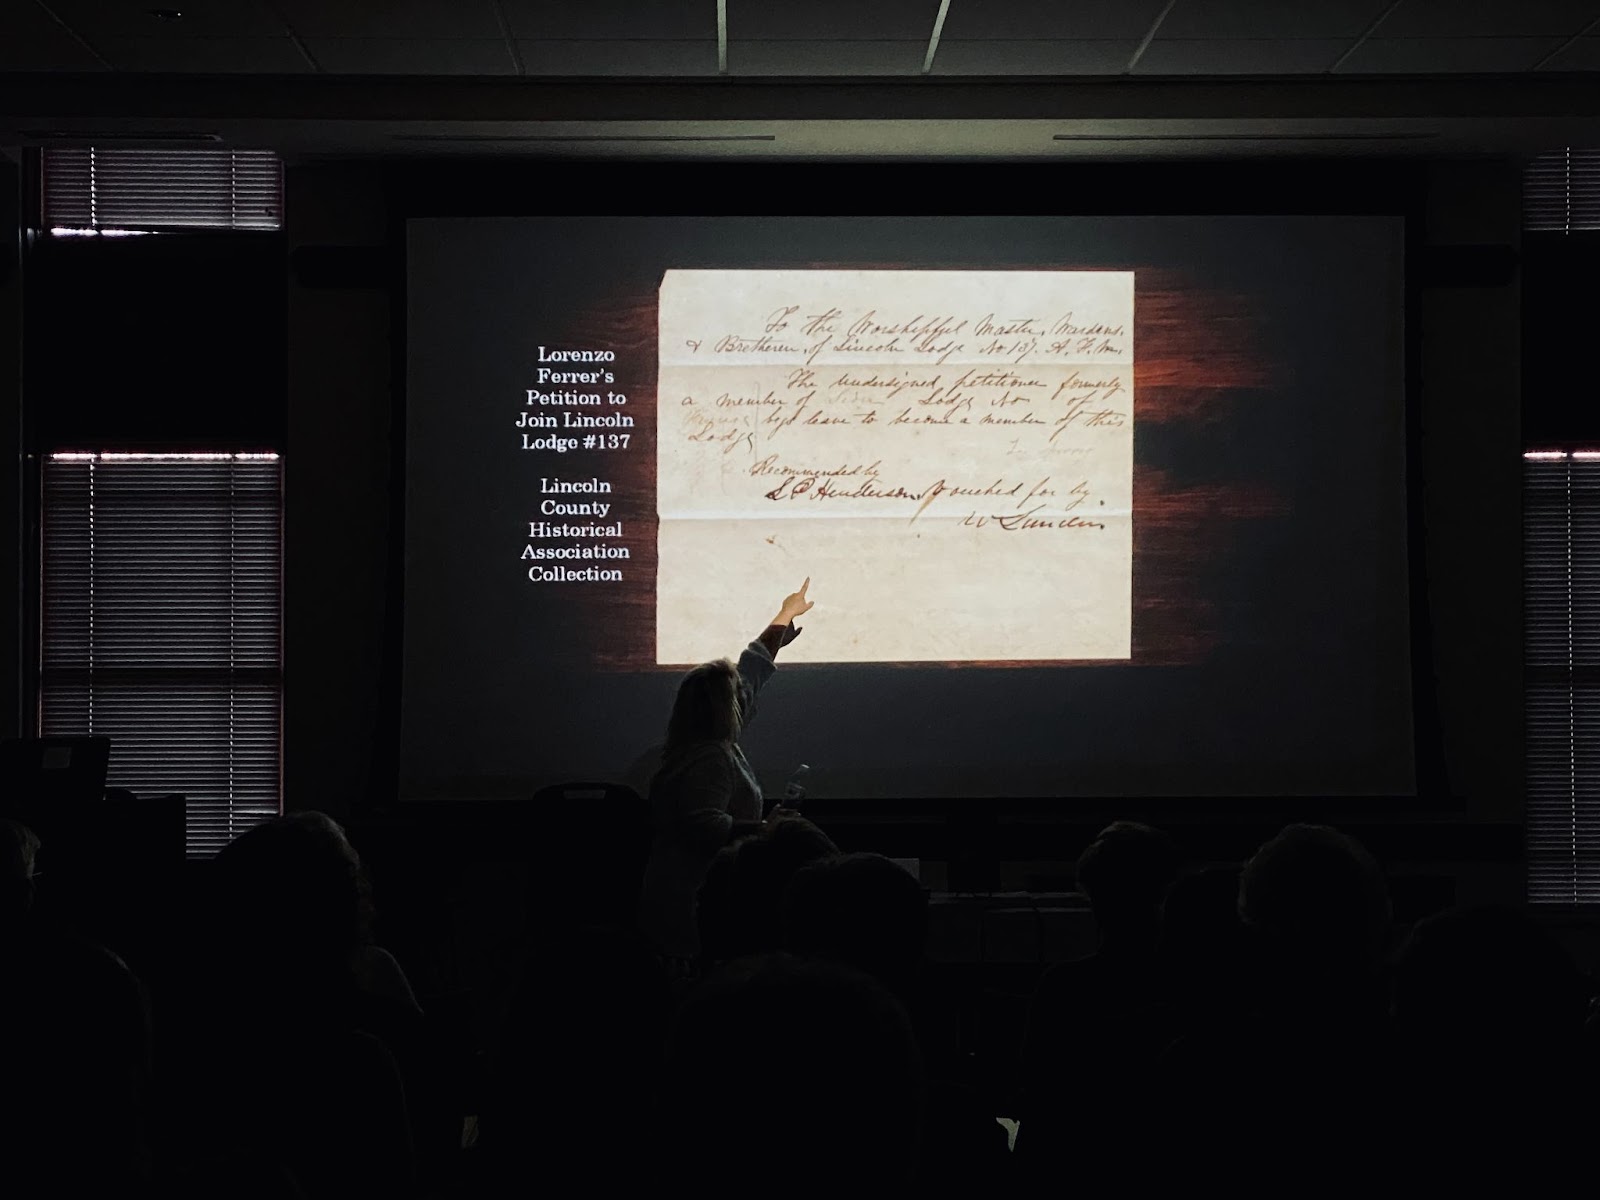 Lorenzo
Ferrer's
Petition to
Join Lincoln
Lodge #137
Lincoln
County
Historical
Association
Collection
To the Worshipfyl Master, Wardens,
& Bretheren, of Lincoln Lodge No 137. A. F. M.
The undersigned petitioner formerly
a member of Lodge No of
begs leave to become a member of this
Lodge
Recommended by
Henderson, Vouched for by